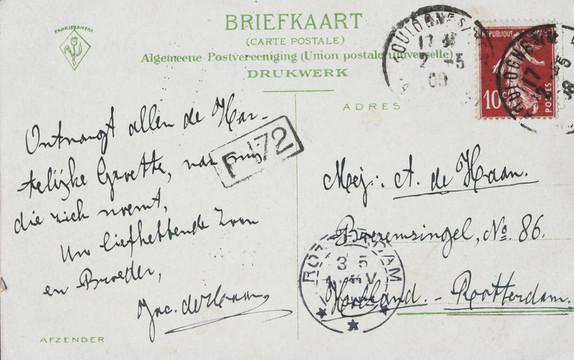 BRIEFKAART
(CARTE POSTALE)
Algemeene Postvereeniging (Union postale universelle)
DRUKWERK
ADRES
17
2-5
08
10
POSTES
Ontvangt allen de Har-
telijke Groette, van mij
die zich noemt,
Uw liefhebbende Zoon
en Broeder,
Jac. de Haan
P 172
Mej: A. de Haan.
Boezemsingel, No. 86.
Holland. - Rotterdam.
ROTTERDAM
3 5
V
AFZENDER